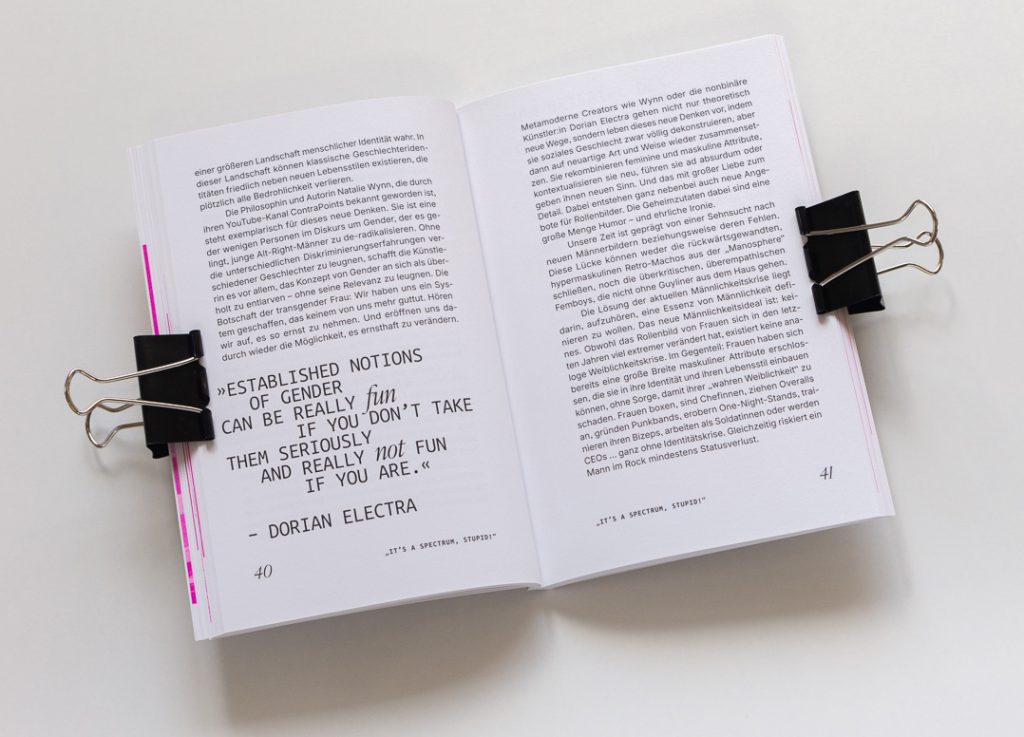 einer größeren Landschaft menschlicher Identität wahr. In
dieser Landschaft können klassische Geschlechteriden-
titäten friedlich neben neuen Lebensstilen existieren, die
plötzlich alle Bedrohlichkeit verlieren.
Die Philosophin und Autorin Natalie Wynn, die durch
ihren YouTube-Kanal ContraPoints bekannt geworden ist,
steht exemplarisch für dieses neue Denken. Sie ist eine
der wenigen Personen im Diskurs um Gender, der es ge-
lingt, junge Alt-Right-Männer zu de-radikalisieren. Ohne
die unterschiedlichen Diskriminierungserfahrungen ver-
schiedener Geschlechter zu leugnen, schafft die Künstle-
rin es vor allem, das Konzept von Gender an sich als über-
holt zu entlarven – ohne seine Relevanz zu leugnen. Die
Botschaft der transgender Frau: Wir haben uns ein Sys-
tem geschaffen, das keinem von uns mehr guttut. Hören
wir auf, es so ernst zu nehmen. Und eröffnen uns da-
durch wieder die Möglichkeit, es ernsthaft zu verändern.
»ESTABLISHED NOTIONS
OF GENDER
CAN BE REALLY fun
IF YOU DON'T TAKE
THEM SERIOUSLY
AND REALLY not FUN
IF YOU ARE.«
– DORIAN ELECTRA
„IT'S A SPECTRUM, STUPID!"
40
Metamoderne Creators wie Wynn oder die nonbinäre
Künstler:in Dorian Electra gehen nicht nur theoretisch
neue Wege, sondern leben dieses neue Denken vor, indem
sie soziales Geschlecht zwar völlig dekonstruieren, aber
dann auf neuartige Art und Weise wieder zusammenset-
zen. Sie rekombinieren feminine und maskuline Attribute,
kontextualisieren sie neu, führen sie ad absurdum oder
geben ihnen neuen Sinn. Und das mit großer Liebe zum
Detail. Dabei entstehen ganz nebenbei auch neue Ange-
bote für Rollenbilder. Die Geheimzutaten dabei sind eine
große Menge Humor – und ehrliche Ironie.
Unsere Zeit ist geprägt von einer Sehnsucht nach
neuen Männerbildern beziehungsweise deren Fehlen.
Diese Lücke können weder die rückwärtsgewandten,
hypermaskulinen Retro-Machos aus der „Manosphere"
schließen, noch die überkritischen, überempathischen
Femboys, die nicht ohne Guyliner aus dem Haus gehen.
Die Lösung der aktuellen Männlichkeitskrise liegt
darin, aufzuhören, eine Essenz von Männlichkeit defi-
nieren zu wollen. Das neue Männlichkeitsideal ist: kei-
nes. Obwohl das Rollenbild von Frauen sich in den letz-
ten Jahren viel extremer verändert hat, existiert keine ana-
loge Weiblichkeitskrise. Im Gegenteil: Frauen haben sich
bereits eine große Breite maskuliner Attribute erschlos-
sen, die sie in ihre Identität und ihren Lebensstil einbauen
können, ohne Sorge, damit ihrer „wahren Weiblichkeit" zu
schaden. Frauen boxen, sind Chefinnen, ziehen Overalls
an, gründen Punkbands, erobern One-Night-Stands, trai-
nieren ihren Bizeps, arbeiten als Soldatinnen oder werden
CEOs ... ganz ohne Identitätskrise. Gleichzeitig riskiert ein
Mann im Rock mindestens Statusverlust.
„IT'S A SPECTRUM, STUPID!"
41